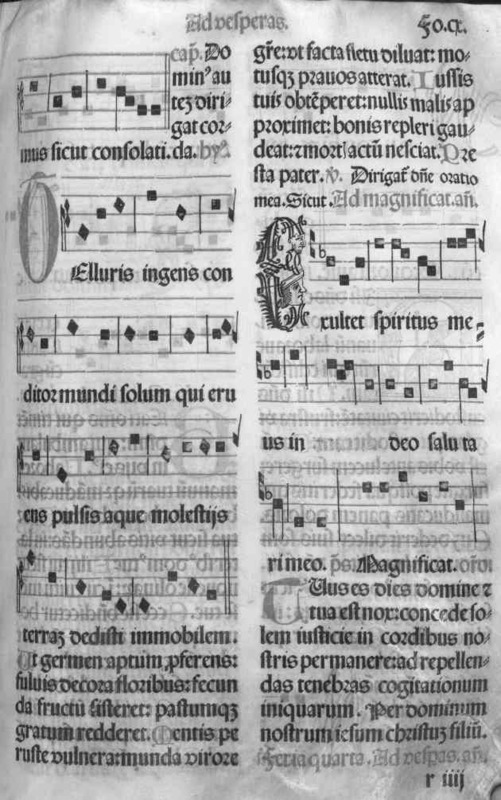 Ad vesperas. Fo.cx.
cap. Do
min⁹ au
tez diri⸗
gat cor⸗
mus sicut consolati. da. hy.
Elluris ingens con
ditor mundi solum qui eru
ens pulsis aque molestijs
terraz dedisti immobilem.
Ut germen aptum ꝓferens:
fuluis decora floribus: fecun
da fructū sisteret: pastumqz
gratum redderet. Mentis pe
ruste vulnera: munda virore
gr̄e: vt facta fletu diluat: mo⸗
tusqz prauos atterat. Iussis
tuis obtēperet: nullis malis ap
proximet: bonis repleri gau⸗
deat: ⁊ mort actū nesciat. Pre
sta pater. ℣. Dirigat dn̄e oratio
mea. Sicut. Ad magnificat. an̄.
Exultet spiritus me⸗
us in deo saluta
ri meo. ps. Magnificat. oro.
Tuus es dies domine ⁊
tua est nox: concede so⸗
lem iusticie in cordibus no⸗
stris permanere: ad repellen⸗
das tenebras cogitationum
iniquarum. Per dominum
nostrum iesum christuz filiū.
Feria quarta. Ad vespas. an̄.
r iiij